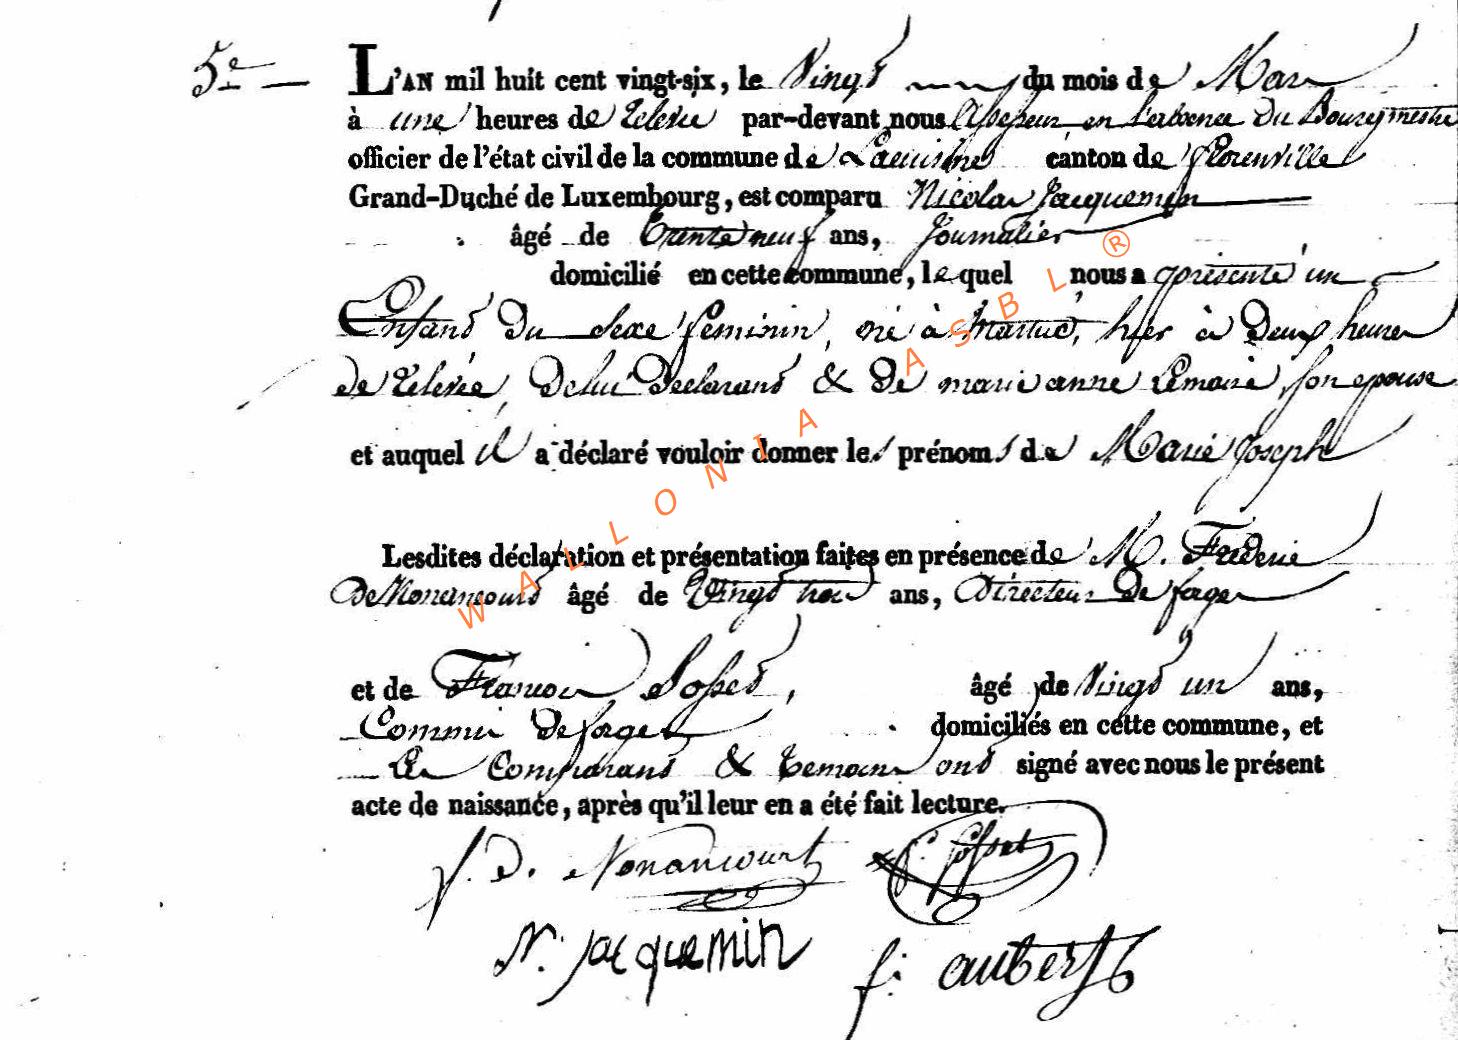 5e
L'AN mil huit cent vingt-six, le Vingt du mois de Mars
à une heures de relevée par-devant nous assesseur, en l'absence du Bourgmestre
officier de l'état civil de la commune de canton de florenville
Grand-Duché de Luxembourg, est comparu Nicolas Jacquemin
âgé de trente neuf ans, Journalier
domicilié en cette commune, lequel nous a présenté un
Enfant du sexe feminin, né à hier à Deux heures
de relevée, de lui Declarant & de marie anne Lemaire, son epouse
et auquel il a déclaré vouloir donner les prénoms de Marie Joseph
Lesdites déclaration et présentation faites en présence de M. Frederic
De Nonancourt âgé de Vingt trois ans, Directeur de forges
et de François Posset, âgé de Vingt un ans,
Commis de forges domiciliés en cette commune, et
Les Comparant & temoins ont signé avec nous le présent
acte de naissance, après qu'il leur en a été fait lecture.
f. D. Nonancourt
N. jacquemin f: aubert
WALLONIA ASBL ®